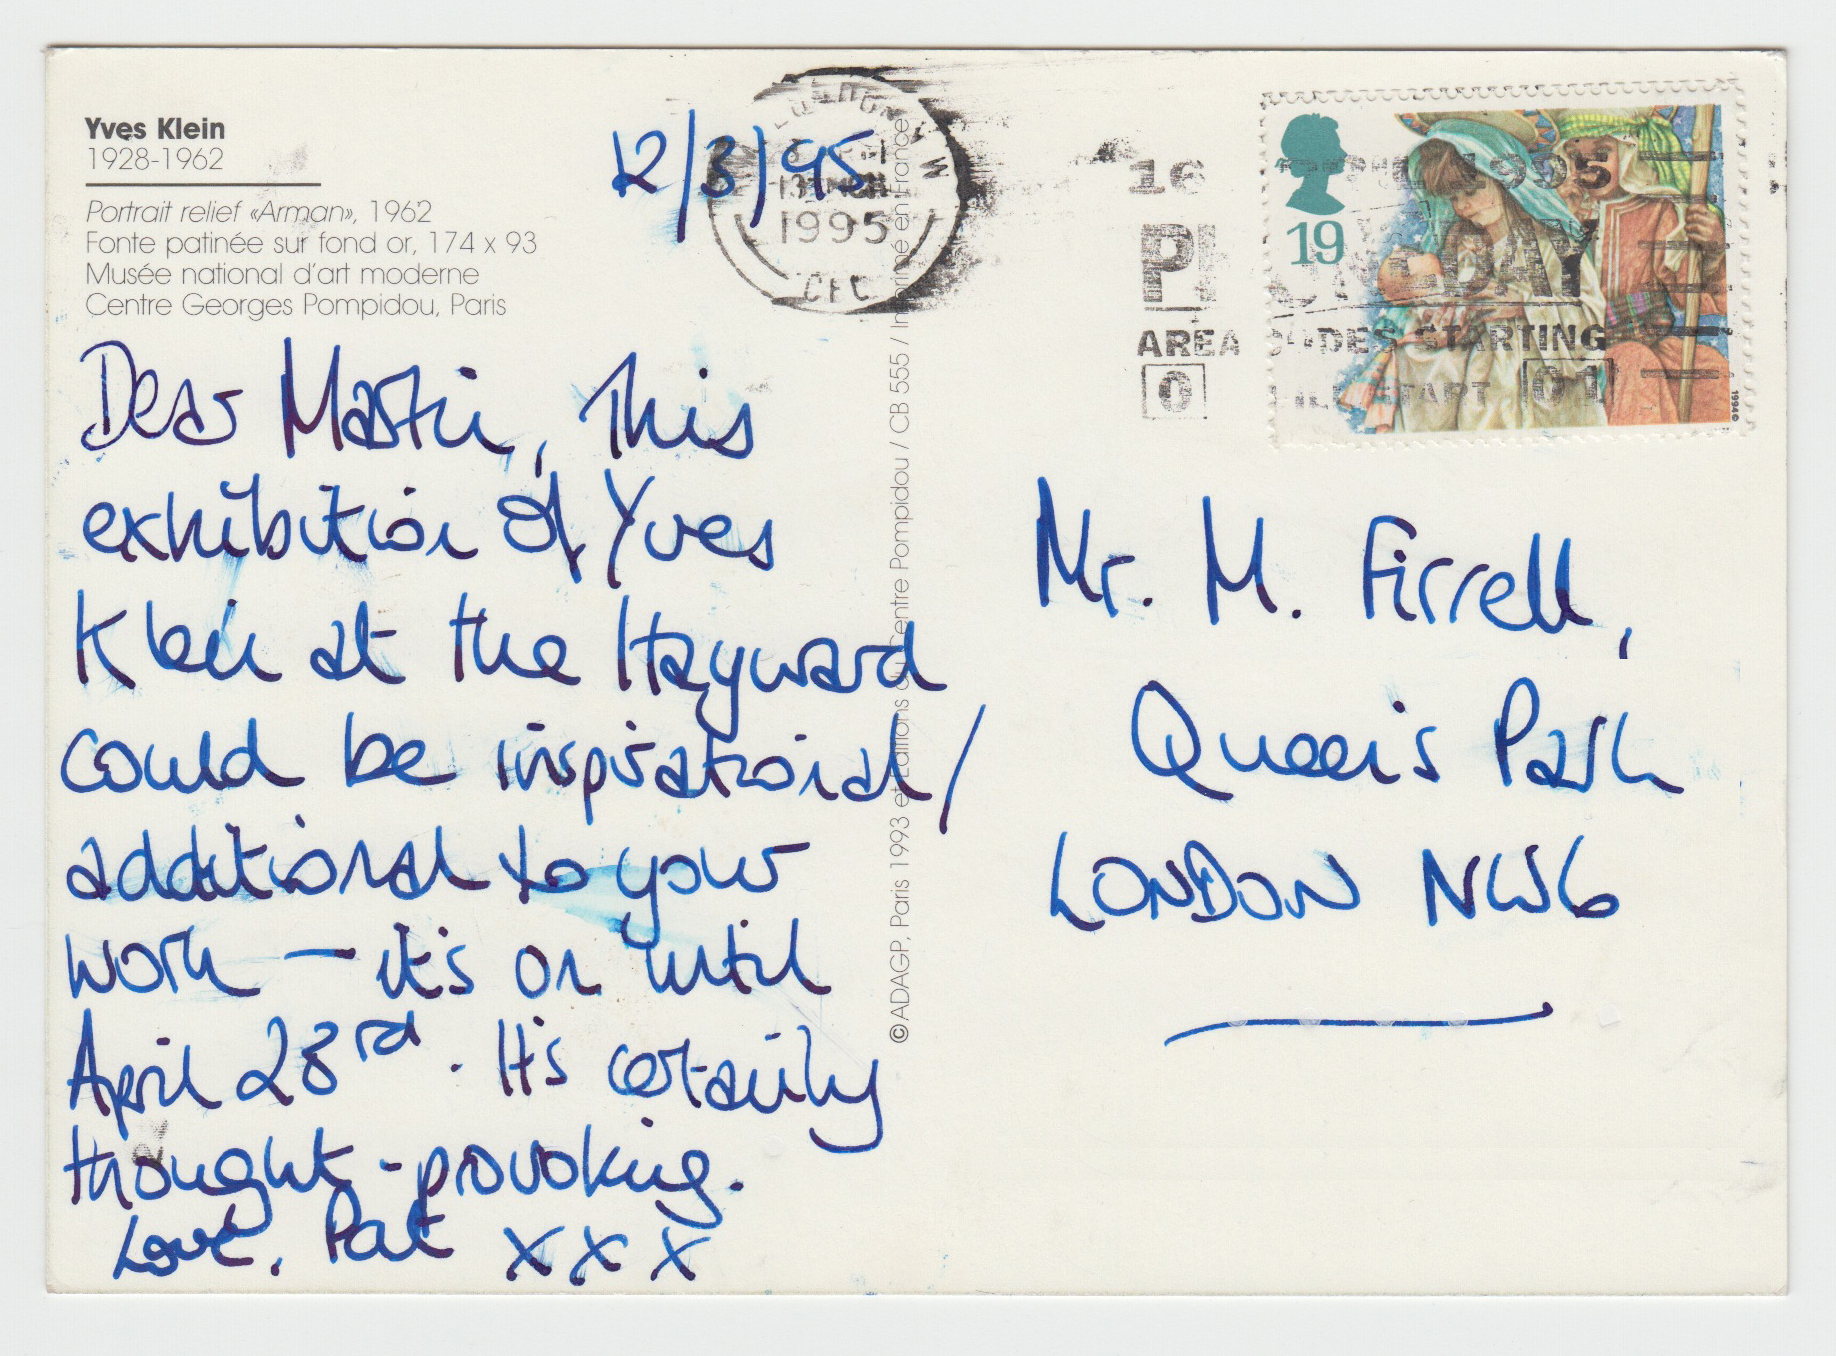 Yves Klein
1928-1962
Portrait relief «Arman», 1962
Fonte patinée sur fond or, 174 x 93
Musée national d'art moderne
Centre Georges Pompidou, Paris
12/3/95
Dear Martin, This
exhibition of Yves
Klein at the Hayward
could be inspirational/
additional to your
work – it's on until
April 23rd. It's certainly
thought-provoking.
Love, Pat x x x
©ADAGP, Paris 1993 et Editions du Centre Pompidou / CB 555 / Imprimé en France
LONDON NW
13 MCH
1995
16 APRIL 1995
PHONEDAY
AREA CODES STARTING
0 WILL START 01
19
1994©
Mr. M. Firrell,
Queen's Park
LONDON NW6